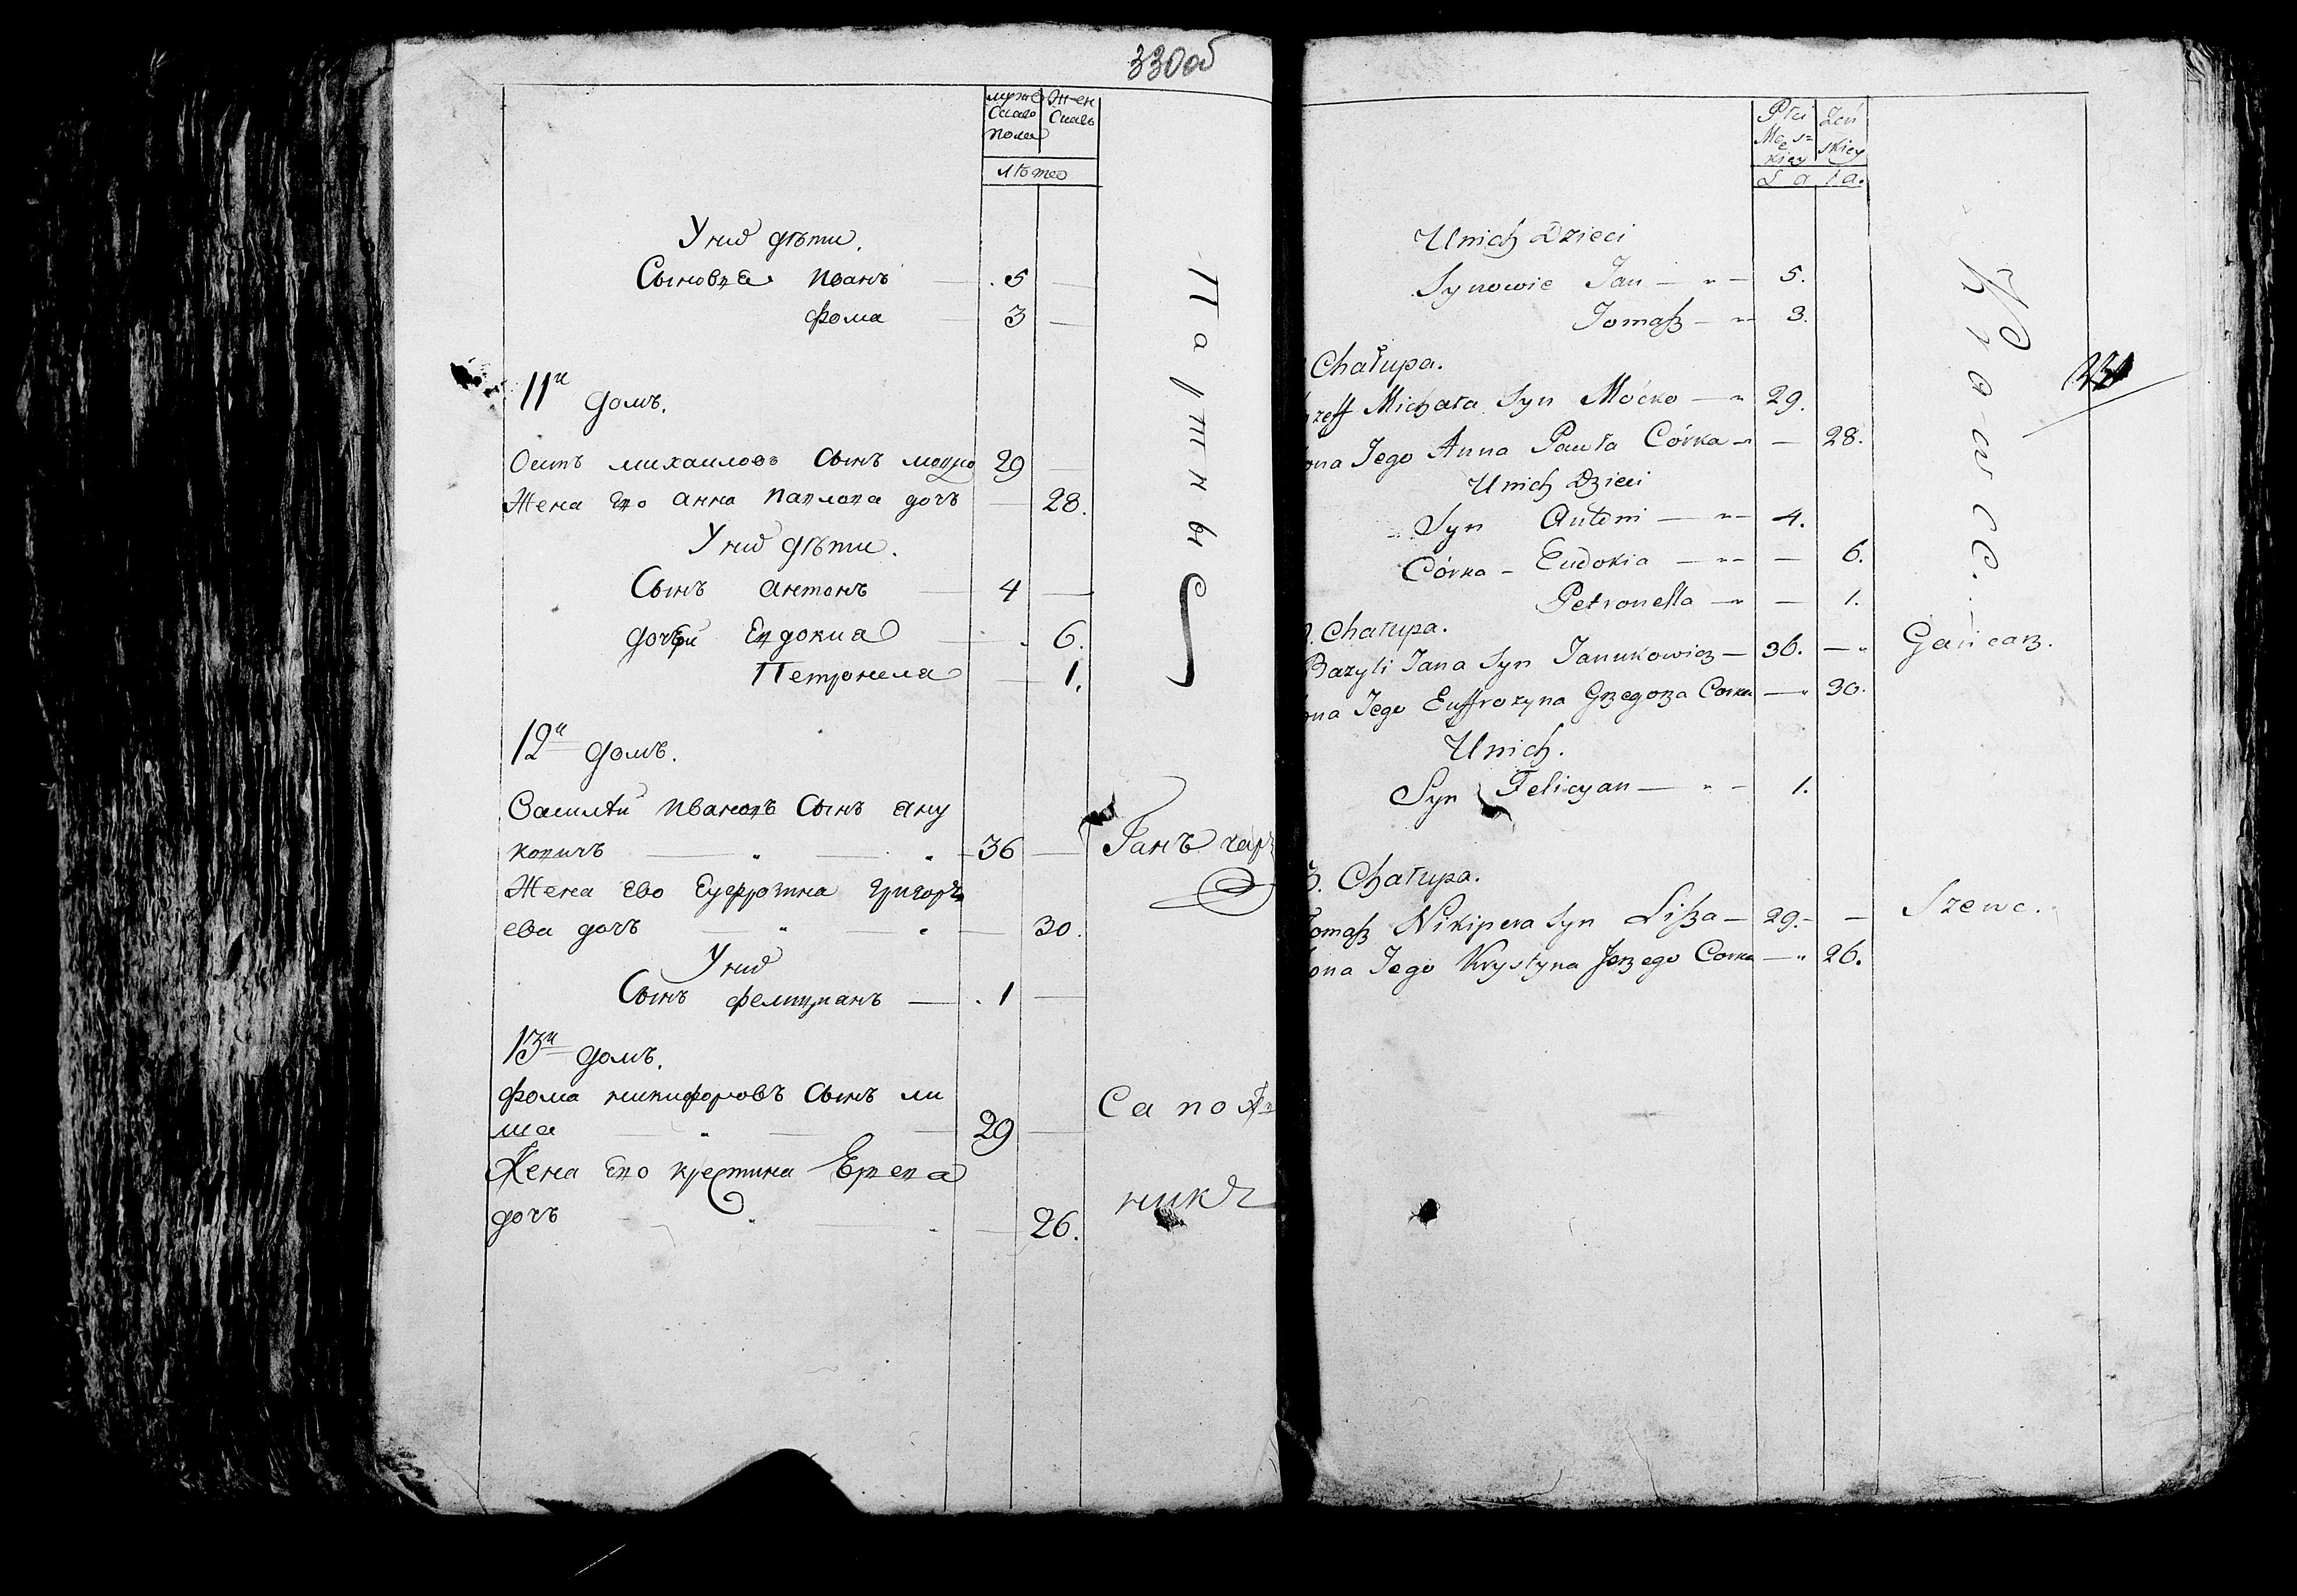 330об
мужескаго пола
Женскаго
лѣтъ
У них дѣти.
Сыновья Иванъ 5
Фома 3
11й домъ.
Осипъ михаиловъ Сынъ моцко 29
Жена Его Анна Павлова дочъ 28.
У них дѣти.
Сынъ Антонъ 4
дочери Евдокиа 6.
Петронела 1.
12й домъ.
Василѣй Ивановъ Сынъ яну
ковичъ 36
Жена Ево Еуфрозина Григорь
ева дочъ 30.
У них
Сынъ Фелициянъ 1
13й домъ.
Фома никифоровъ Сынъ ли
ша 29
Жена Его кристина
дочъ 26.
Ганъчар
Сапож
никъ
Płci Męskiey
Żeńskiey
Lata.
Unich Dzieci
Synowie Jan 5.
Tomasz 3.
Chałupa.
zeff Michała Syn Moćko 29.
ona Jego Anna Pawła Córka 28.
Unich Dzieci
Syn Antoni 4.
Córka Eudokia 6.
Petronella 1.
Chałupa.
Bazyli Jana Syn Janukowicz 36. Gańcarz.
ona Jego Euffrozyna Grzegorza Corka 30.
Unich.
Syn Felicyan 1.
3. Chałupa.
Tomasz Nikipera Syn Lisza 29. Szewc.
ona Jego Krystyna Jerzego Corka 26.